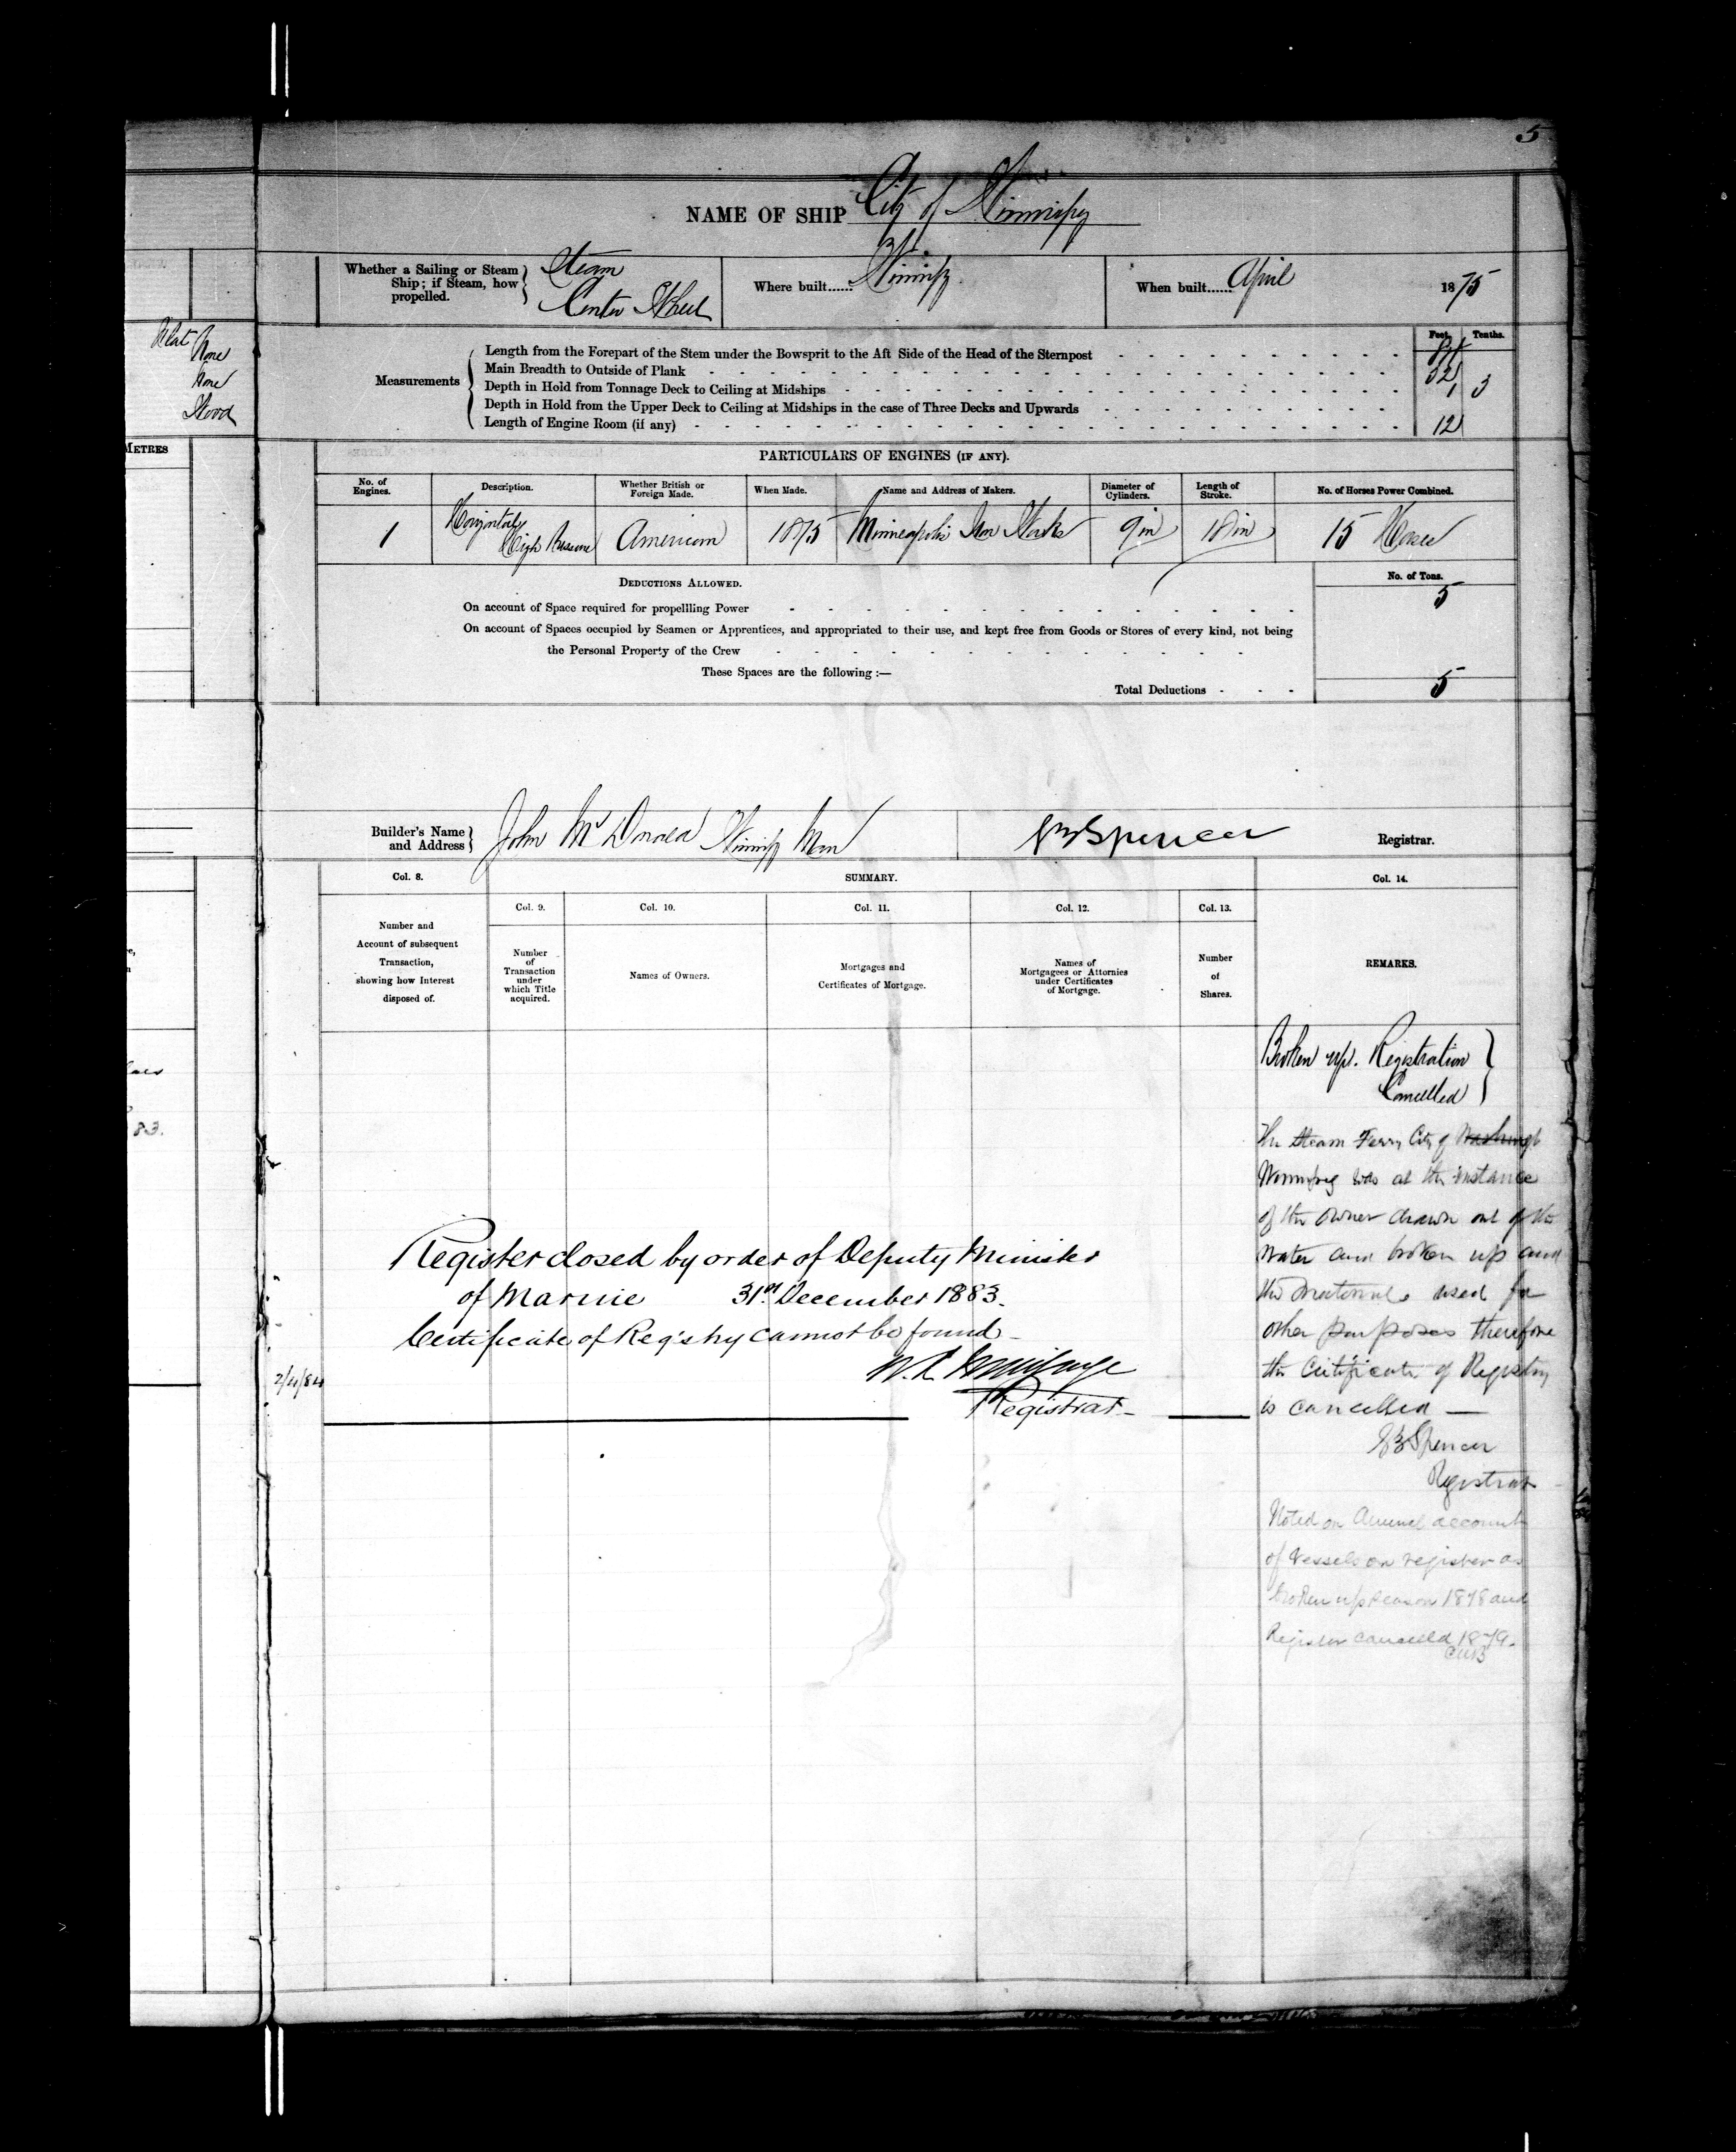 5
NAME OF SHIP City of Winnipeg
Whether a Sailing or Steam Ship; if Steam, how propelled. Steam Center Wheel
Where built...... Winnipeg
When built...... April 1875
Flat
None
None
Wood
METRES
Feet. Tenths.
Measurements
Length from the Forepart of the Stem under the Bowsprit to the Aft Side of the Head of the Sternpost
Main Breadth to Outside of Plank 32
Depth in Hold from Tonnage Deck to Ceiling at Midships 1 3
Depth in Hold from the Upper Deck to Ceiling at Midships in the case of Three Decks and Upwards
Length of Engine Room (if any) 12
PARTICULARS OF ENGINES (IF ANY).
No. of Engines. Description. Whether British or Foreign Made. When Made. Name and Address of Makers. Diameter of Cylinders. Length of Stroke. No. of Horses Power Combined.
1 Horizontal High Pressure American 1875 Minneapolis Iron Works 9 in 18 in 15 Horse
DEDUCTIONS ALLOWED. No. of Tons.
On account of Space required for propellling Power 5
On account of Spaces occupied by Seamen or Apprentices, and appropriated to their use, and kept free from Goods or Stores of every kind, not being
the Personal Property of the Crew
These Spaces are the following :—
Total Deductions 5
Builder's Name and Address John McDonald Winnipeg Man
Spencer Registrar.
Col. 8. SUMMARY. Col. 14.
Col. 9. Col. 10. Col. 11. Col. 12. Col. 13.
Number and Account of subsequent Transaction, showing how Interest disposed of.
Number of Transaction under which Title acquired.
Names of Owners.
Mortgages and Certificates of Mortgage.
Names of Mortgagees or Attornies under Certificates of Mortgage.
Number of Shares.
REMARKS.
83.
Broken up. Registration
Cancelled
The Steam Ferry City of
Winnipeg was at the instance
of the owner drawn out of the
water and broken up and
the materials used for
other purposes therefore
the Certificate of Registry
is cancelled —
Spencer
Registrar
Noted on Annual account
of Vessels on register as
broken up season 1878 and
Register cancelled 1879.
CUB
Register closed by order of Deputy Minister
of Marine 31st December 1883.
Certificate of Registry cannot be found—
2/4/84
Registrar—